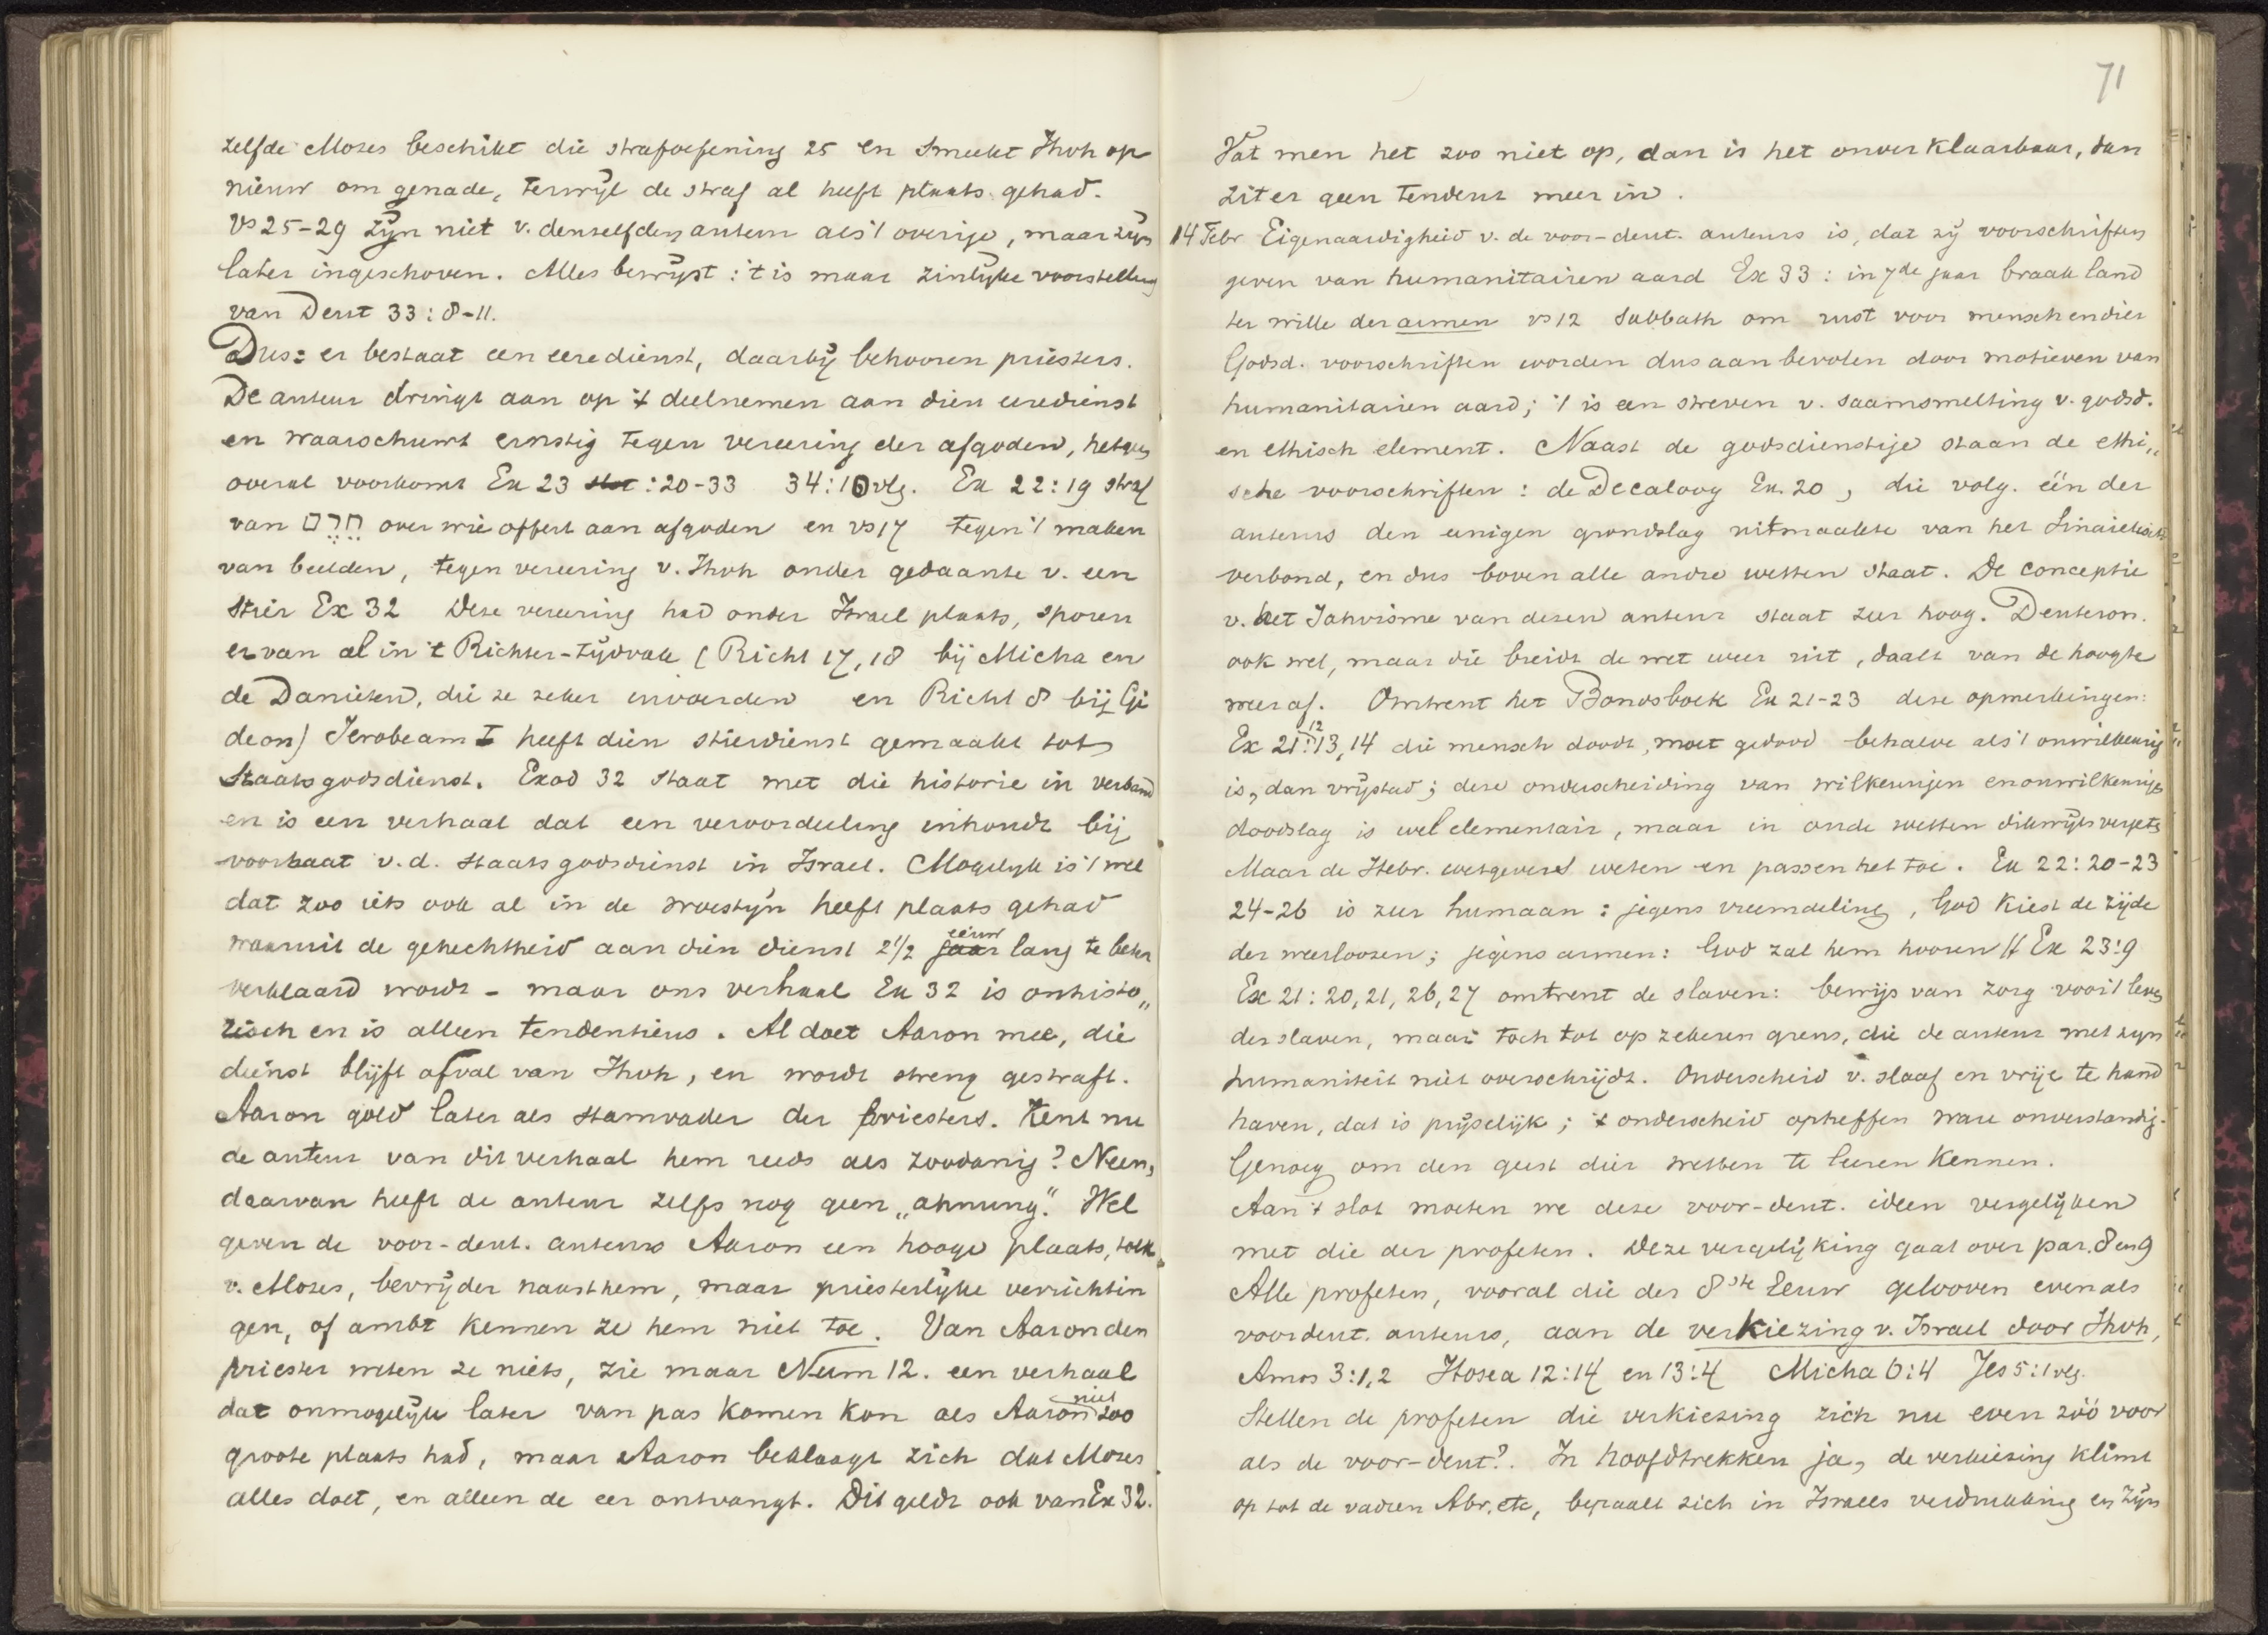 zelfde Mozes beschikt die strafoefening 25 en smeekt Jhvh op
nieuw om genade, terwijl de straf al heeft plaats gehad.
Vs 25-29 zijn niet v. denzelfden auteur als 't overige, maar zijn
later ingeschoven. Alles bewijst: 't is maar zinlijke voorstelling
van Deut 33:8-11.
Dus: er bestaat een eeredienst, daarbij behooren priesters.
De auteur dringt aan op 't deelnemen aan dien eeredienst
en waarschuwt ernstig tegen vereering der afgoden, hetgeen
overal voorkomt Ex 23 :20-33 34:10 vlg. Ex 22:19 straf
van חרם over wie offert aan afgoden en vs 17 tegen 't maken
van beelden, tegen vereering v. Jhvh onder gedaante v. een
Stier Ex 32 Deze vereering had onder Israel plaats, sporen
er van al in 't Richter-tijdvak (Richt 17, 18 bij Micha en
de Danieten, die ze zeker invoerden en Richt 8 bij Gi
deon) Jerobeam I heeft dien stierdienst gemaakt tot
Staatsgodsdienst. Exod 32 staat met die historie in verband
en is een verhaal dat een veroordeeling inhoudt bij
voorbaat v. d. staatsgodsdienst in Israel. Mogelijk is 't wel
dat zoo iets ook al in de woestijn heeft plaats gehad
waaruit de gehechtheid aan dien dienst 2 1/2 jaar eeuw lang te beter
verklaard wordt - maar ons verhaal Ex 32 is onhisto„
risch en is alleen tendentieus. Al doet Aaron mee, die
dienst blijft afval van Jhvh, en wordt streng gestraft.
Aaron gold later als stamvader der priesters. Kent nu
de auteur van dit verhaal hem reeds als zoodanig? Neen,
daarvan heeft de auteur zelfs nog geen „ahnung". Wel
geven de voor-deut. auteurs Aaron een hooge plaats, tolk
v. Mozes, bevrijder naast hem, maar priesterlijke verrichtin
gen, of ambt kennen ze hem niet toe. Van Aaron den
priester weten ze niets, zie maar Num 12. een verhaal
dat onmogelijk later van pas komen kon als Aaron niet zoo
groote plaats had, maar Aaron beklaagt zich dat Mozes
alles doet, en alleen de eer ontvangt. Dit geldt ook van Ex 32.
71
Vat men het zoo niet op, dan is het onverklaarbaar, dan
zit er geen tendenz meer in.
14 Febr Eigenaardigheid v. de voor-deut. auteurs is, dat zij voorschriften
geven van humanitairen aard Ex 33: in 7de jaar braak land
ter wille der armen vs 12 Sabbath om rust voor mensch en dier
Godsd. voorschriften worden dus aanbevolen door motieven van
humanitairen aard; 't is een streven v. saamsmelting v. godsd.
en ethisch element. Naast de godsdienstige staan de ethi„
sche voorschriften: de Decaloog Ex. 20, die volg. één der
auteurs den eenigen grondslag uitmaakte van het Sinaietisch
verbond, en dus boven alle andre wetten staat. De conceptie
v. het Jahvisme van dezen auteur staat zeer hoog. Deuteron.
ook wel, maar die breidt de wet weer uit, daalt van de hoogte
weer af. Omtrent het Bondsboek Ex 21-23 deze opmerkingen:
Ex 21:12 13,14 die mensch doodt, moet gedood behalve als 't onwillekeurig
is, dan vrijstad; deze onderscheiding van wilkeurigen en onwilkeurigen
doodslag is wel elementair, maar in oude wetten dikwijls vergeten
Maar de Hebr. wetgevers weten en passen het toe. Ex 22:20-23
24-26 is zeer humaan: jegens vreemdeling, God kiest de zijde
der weerloozen; jegens armen: God zal hem hooren // Ex 23:9
Ex 21:20,21,26,27 omtrent de slaven: bewijs van zorg voor 't leven
der slaven, maar toch tot op zekeren grens, die de auteur met zijn
humaniteit niet overschrijdt. Onderscheid v. slaaf en vrije te hand
haven, dat is prijselijk; 't onderscheid opheffen ware onverstandig.
Genoeg om den geest dier wetten te leeren kennen.
Aan 't slot moeten we deze voor-deut. ideen vergelijken
met die der profeten. Deze vergelijking gaat over par. 8 en 9
Alle profeten, vooral die der 8ste Eeuw gelooven evenals
voordeut. auteurs, aan de verkiezing v. Israel door Jhvh,
Amos 3:1,2 Hosea 12:14 en 13:4 Micha 6:4 Jes 5:1 vlg.
Stellen de profeten die verkiezing zich nu even zóó voor
als de voor-deut?. In hoofdtrekken ja, de verkiezing klimt
op tot de vadren Abr. etc, bepaalt zich in Israels verdrukking en zijn